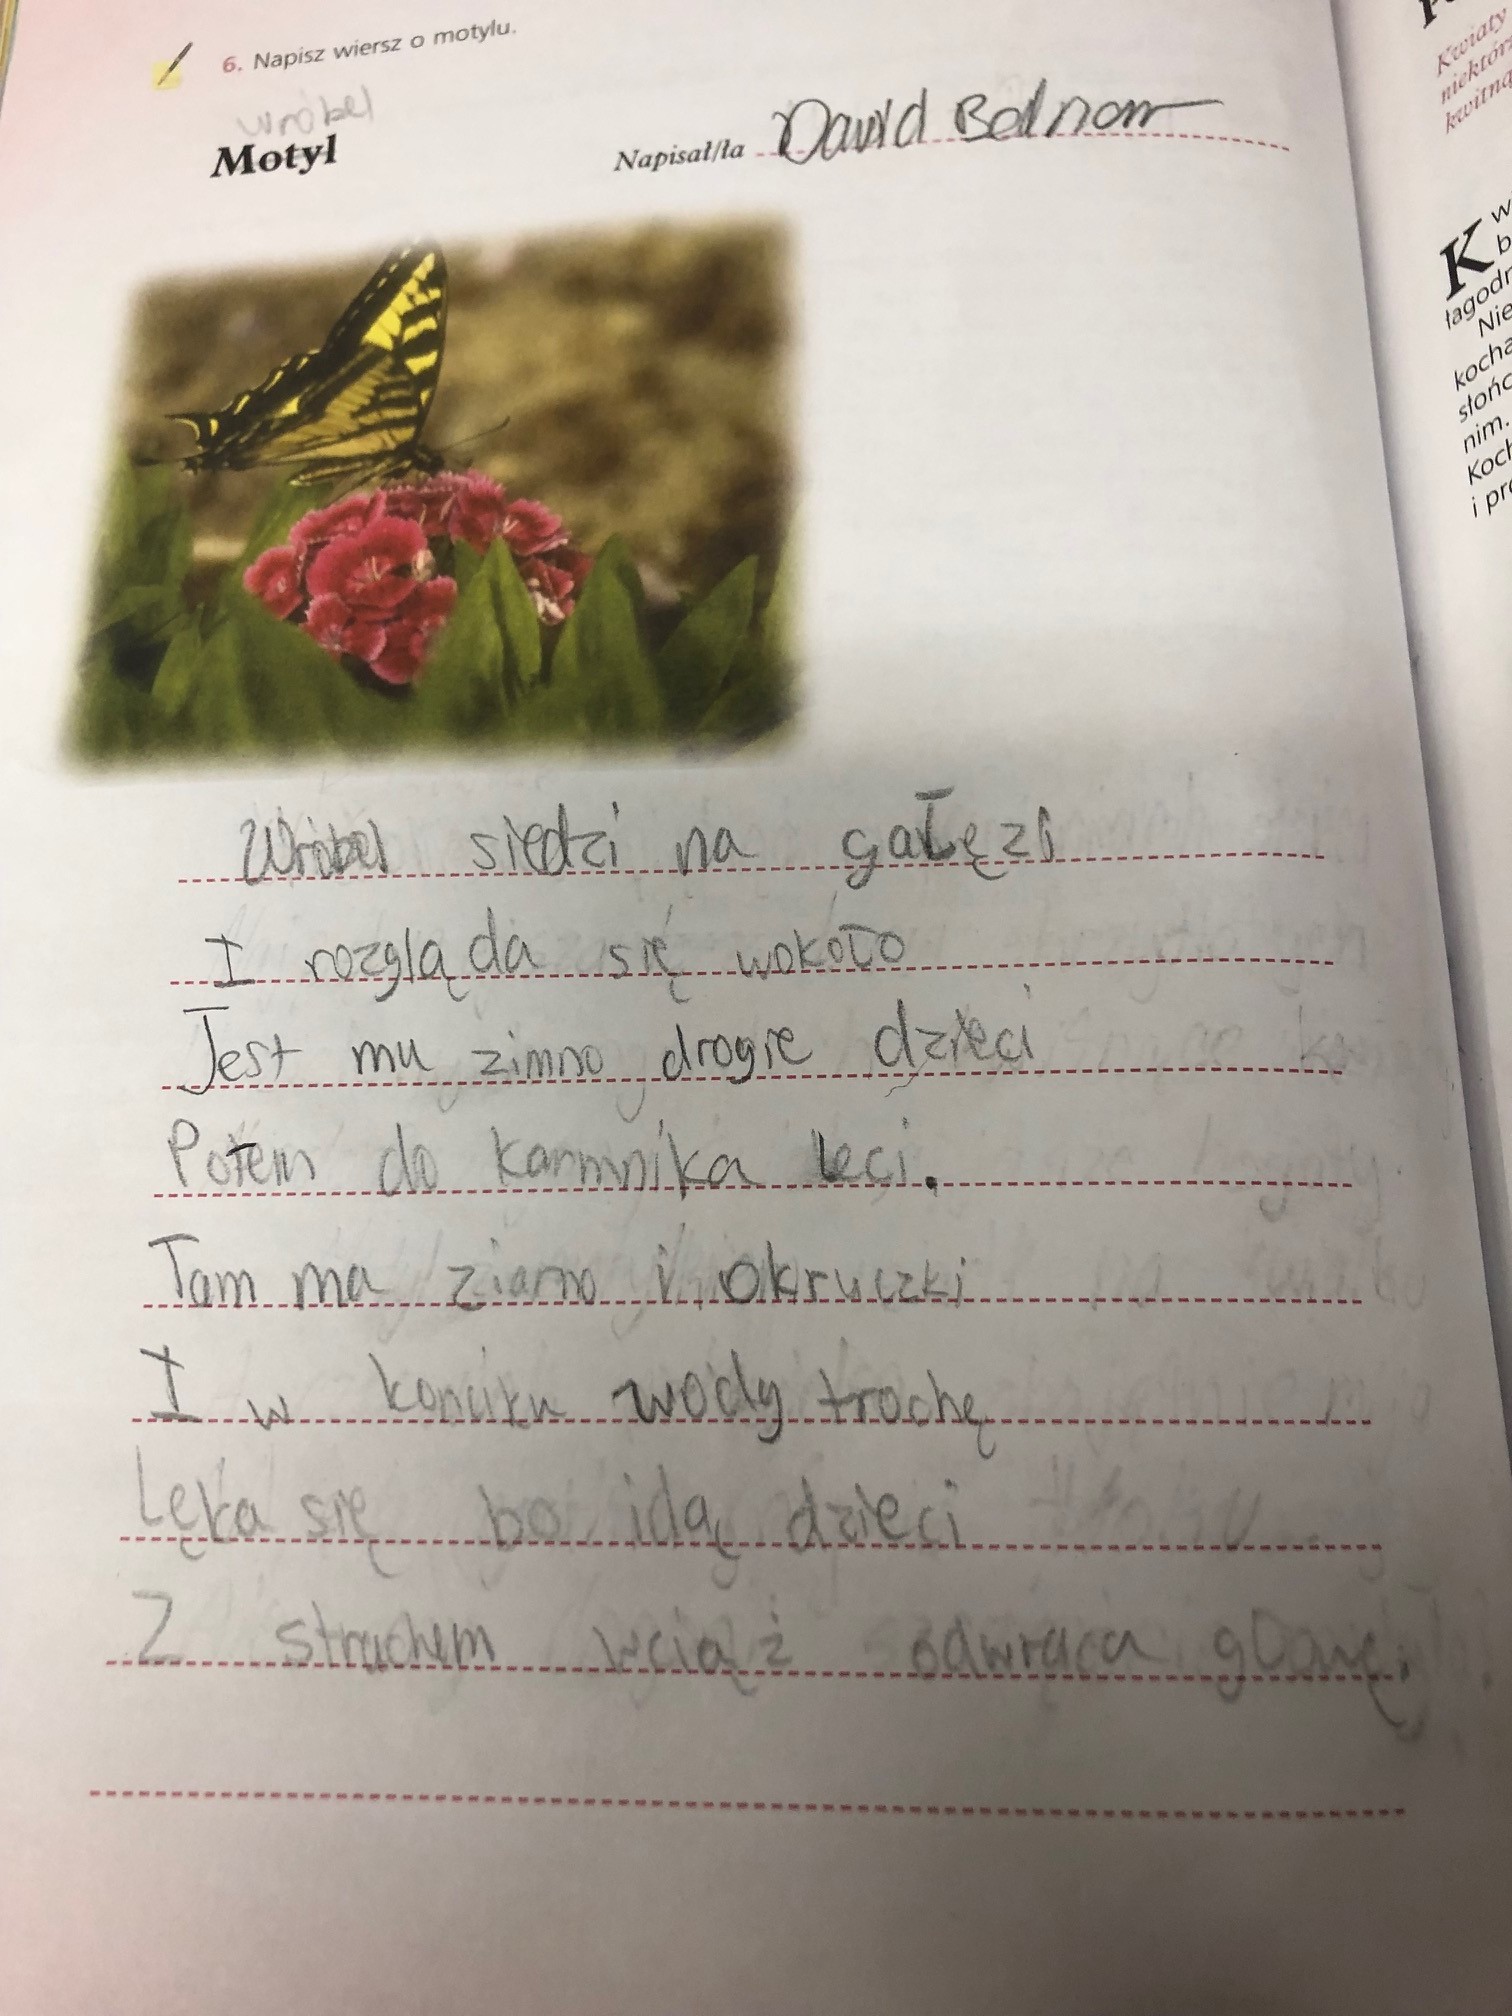 6. Napisz wiersz o motylu.
wróbel
Motyl
Napisał/ła David
Wróbel siedzi na gałęzi
I rozgląda się wokoło
Jest mu zimno drogie dzieci
Potem do karmnika leci.
Tam ma ziarno i okruczki
I w konciku wody trochę
Lęka się bo idą dzieci
Z strachem wciąż odwraca głowę.
Kwiaty
niektór
kwitną
K w
b
łagodn
Nie
kocha
słońc
nim.
Koch
i pro